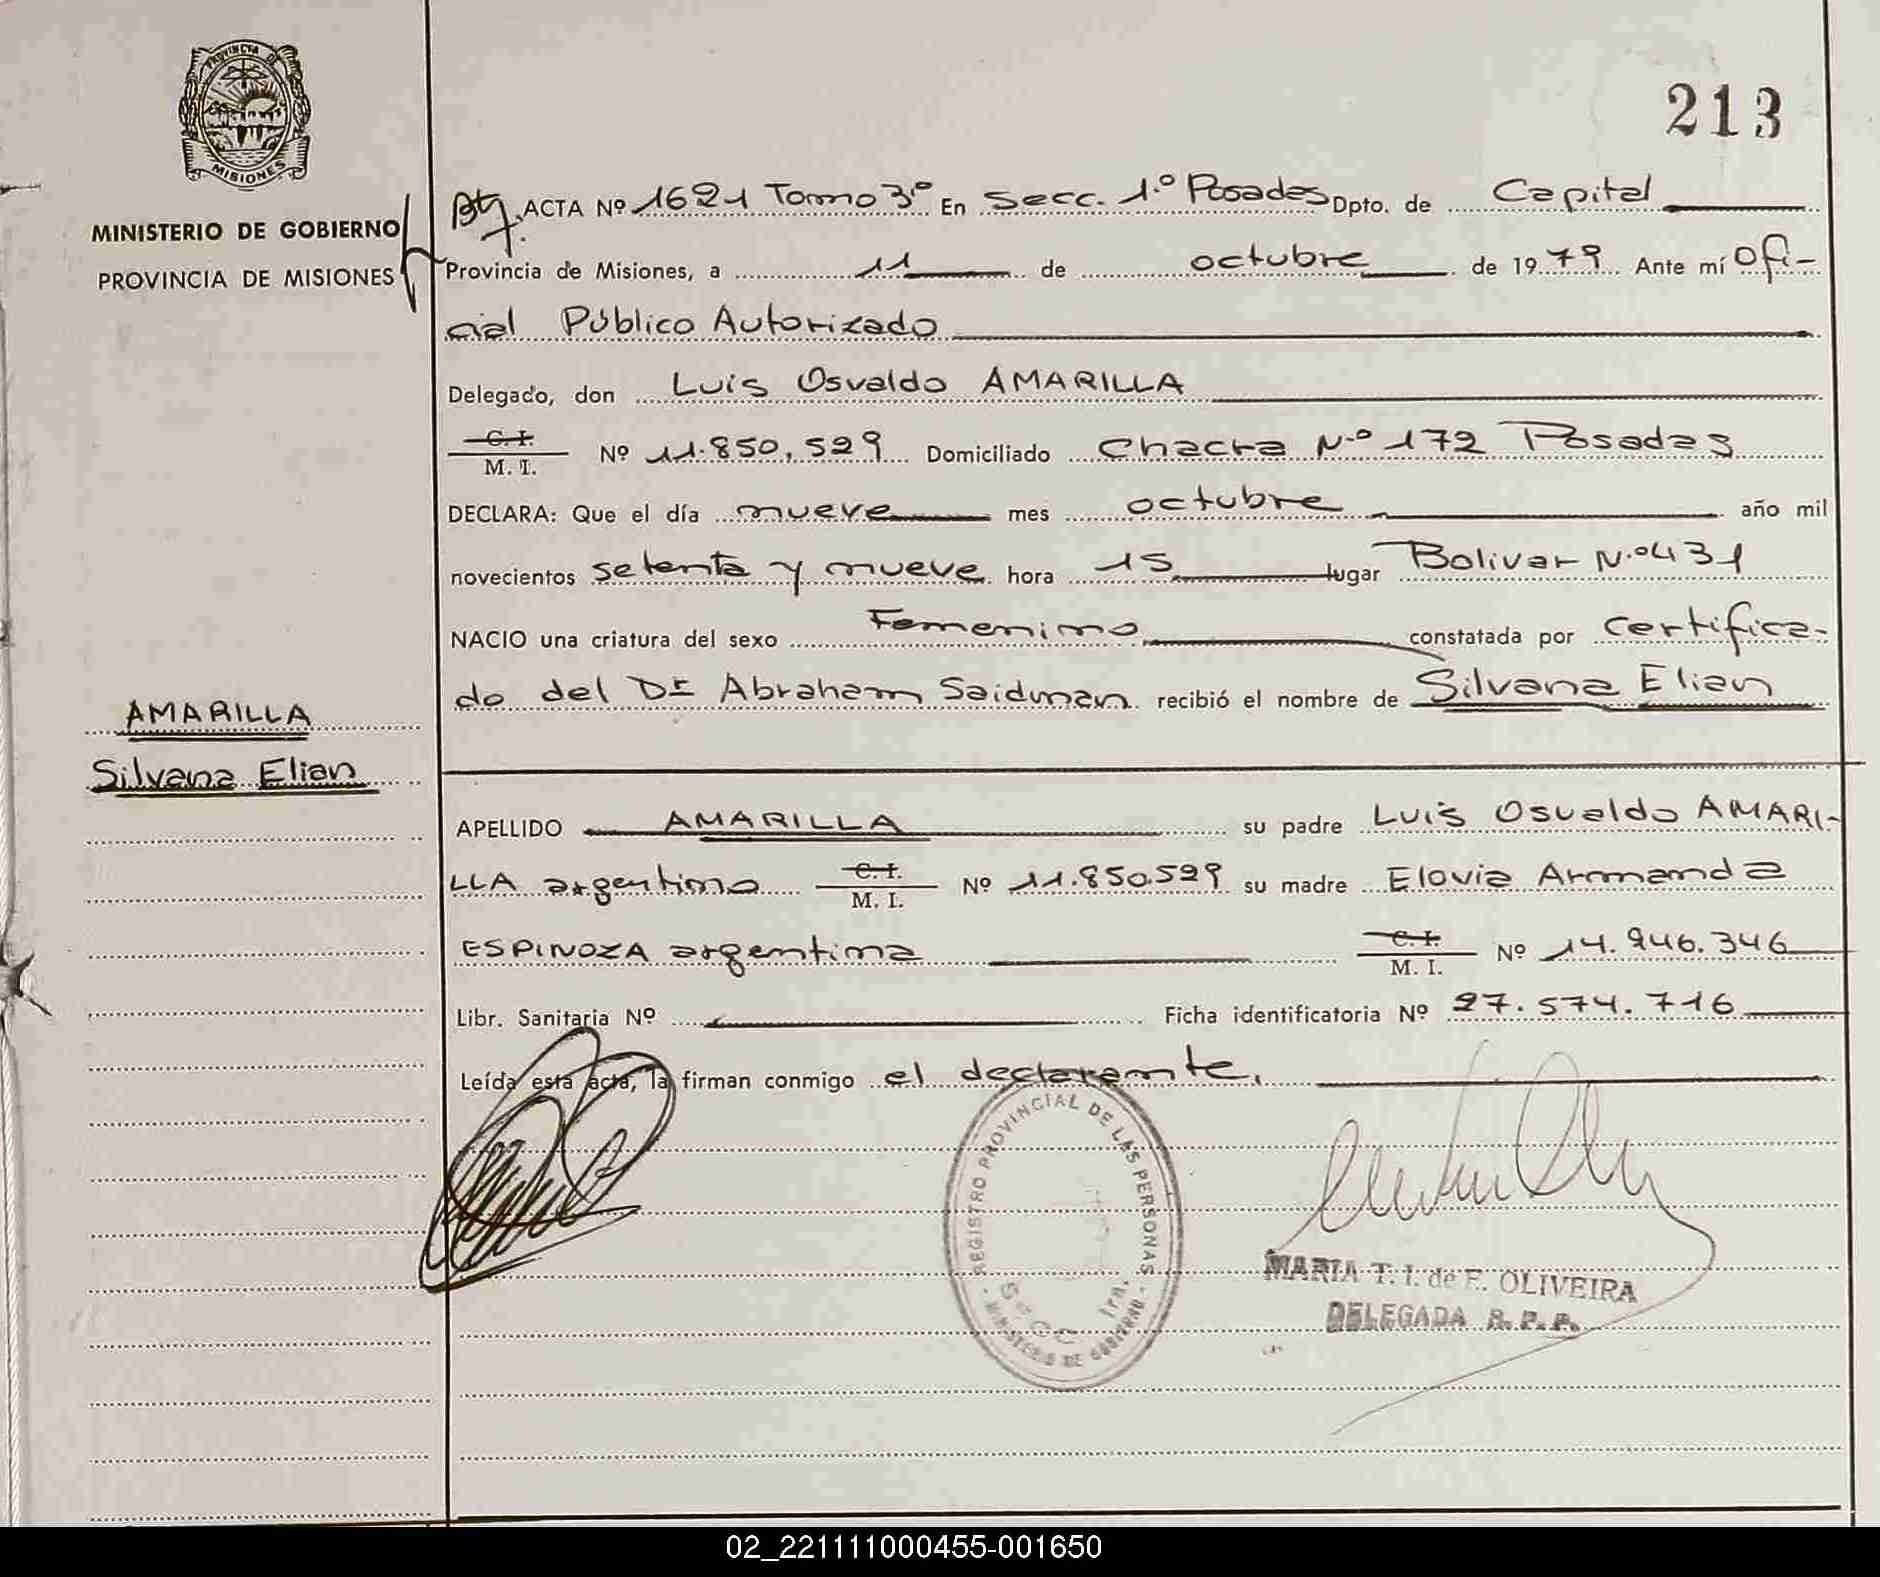 PROVINCIA DE
MISIONES
MINISTERIO DE GOBIERNO
PROVINCIA DE MISIONES
213
ACTA Nº 1621 Tomo 3º En Secc. 1.º Posadas Dpto. de Capital
Provincia de Misiones, a 11 de octubre de 1979 Ante mí Ofi-
cial Público Autorizado
Delegado, don Luis Osvaldo AMARILLA
C. I.
M. I. Nº 11.850.529 Domiciliado Chacra N.º 172 Posadas
DECLARA: Que el día nueve mes octubre año mil
novecientos setenta y nueve hora 15 lugar Bolivar N.º 431
NACIO una criatura del sexo Femenino constatada por certifica-
do del Dr Abraham Saidman recibió el nombre de Silvana Elian
AMARILLA
Silvana Elian
APELLIDO AMARILLA su padre Luis Osvaldo AMARI-
LLA argentino C. I.
M. I. Nº 11.850.529 su madre Elovia Armanda
ESPINOZA argentina C. I.
M. I. Nº 14.946.346
Libr. Sanitaria Nº Ficha identificatoria Nº 27.574.716
Leída esta acta, la firman conmigo el declarante.
REGISTRO PROVINCIAL DE LAS PERSONAS
Secc. 1ra.
MINISTERIO DE GOBIERNO
MARIA T. I. de E. OLIVEIRA
DELEGADA R. P. P.
02_221111000455-001650